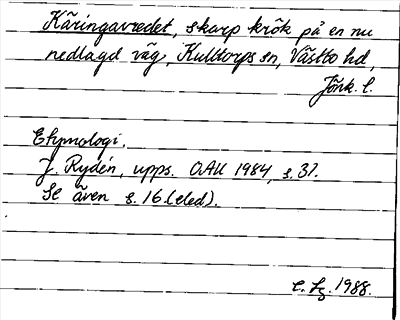 Käringavredet, skarp krök på en nu
nedlagd väg, Kulltorps sn, Västbo hd,
Jönk. l.
Etymologi.
J. Rydén, upps. OAU 1984, s. 37.
Se även s. 16 (eled).
1988.